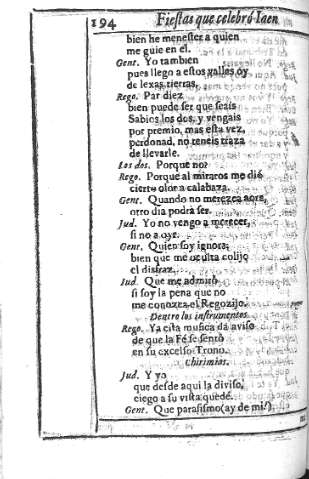 194 Fiestas que celebrò Iaen
bien he menester a quien
me guie en el.
Gent. Yo tambien
pues llego a estos valles oy
de lexas tierras.
Rego. Par diez
bien puede ser que seais
Sabios los dos, y vengais
por premio, mas esta vez,
perdonad, no teneis traza
de llevarle.
Los dos. Porque no?
Rego. Porque al miraros me diò
cierto olor a calabaza.
Gent. Quando no merezca aora,
otro dia podrà ser.
Jud. Yo no vengo a merecer,
si no a oyr.
Gent. Quien soy ignora;
bien que me oculta colijo
el disfraz.
Jud. Que me admirò
si soy la pena que no
me conozca el Regozijo.
Dentro los instrumentos.
Rego. Ya esta musica dà aviso
de que la Fè se sentò
en su excelso Trono.
Chirimias.
Jud. Y yo
que desde aqui la diviso,
ciego a su vista quedè.
Gent. Que parasismo (ay de mi!)